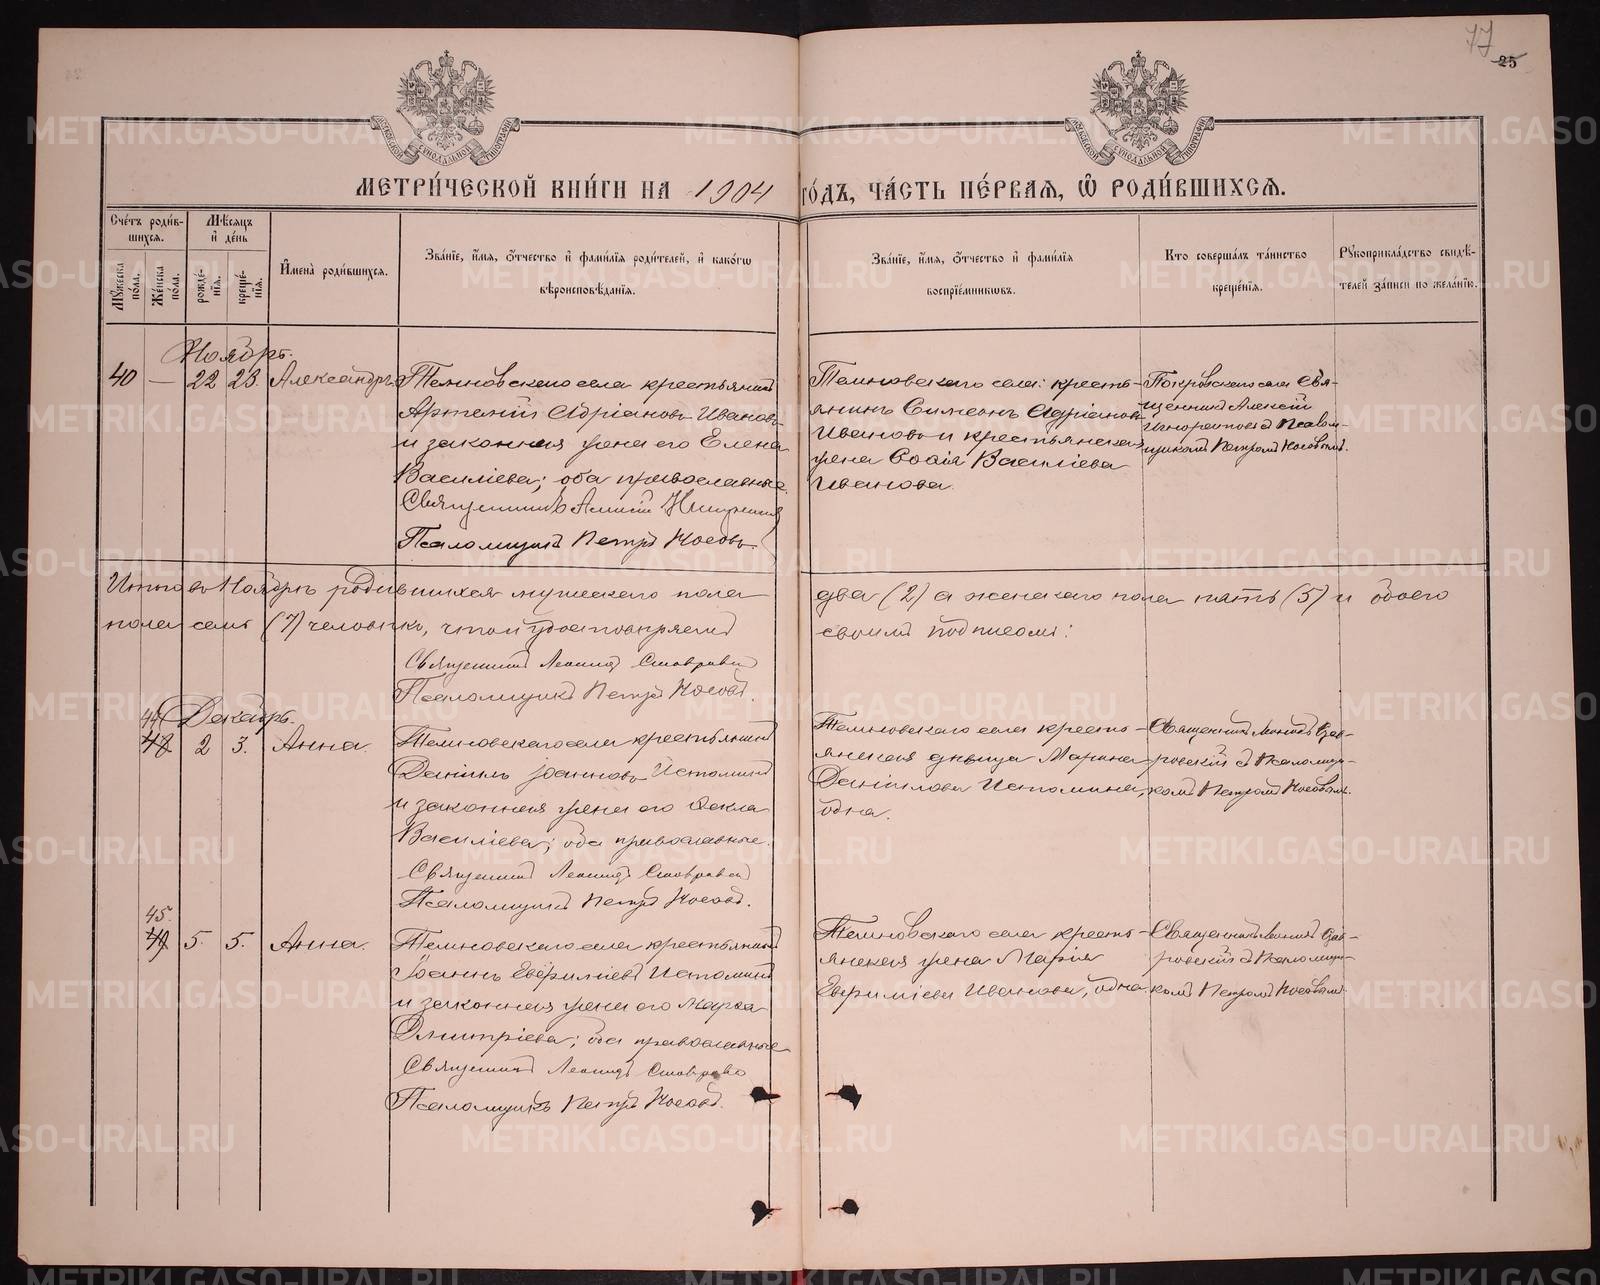 77
25
МЕТРИ́ЧЕСКОЙ КНИ́ГИ НА 1904 ГО́ДЪ, ЧА́СТЬ ПЕ́РВАЯ, Ѡ РОДИ́ВШИХСЯ.
Сче́тъ роди́вшихся.
Му́жеска по́ла.
Же́нска по́ла.
Мѣ́сяцъ и де́нь
рожде́нїя.
креще́нїя.
И́мена̀ роди́вшихся.
Зва́нїе, и́мя, о́тчество и фами́лїя роди́телей, и како́гѡ
вѣроисповѣ́данїя.
Зва́нїе, и́мя, о́тчество и фами́лїя
воспрїе́мникѡвъ.
Кто соверша́лъ та́инство
креще́нїя.
Рꙋкоприкла́дство свидѣ́-
телей за́писи по жела́нїю.
Ноябрь.
40 — 22 23. Александръ
Темновскаго села крестьянинъ
Артемій Адріановъ Ивановъ
и законная жена его Елена
Васильева; оба православные.
Священникъ Алексій
Псаломщикъ Петръ Носовъ
Темновскаго села: кресть-
янинъ Симеонъ Адріановъ
Ивановъ и крестьянская
жена Софія Васильева
Иванова.
Покровскаго села Свя-
щенникъ Алексій
съ Псалом-
щикомъ Петромъ Носовымъ.
Итого въ Ноябрѣ родившихся мужескаго пола два (2) а женскаго пола пять (5) и обоего
пола семь (7) человѣкъ, что и удостовѣряемъ своимъ подписомъ:
Священникъ Леонидъ Ставровскій
Псаломщикъ Петръ Носовъ.
Декабрь.
44
48 2 3. Анна.
Темновскаго села крестьянинъ
Даніилъ Іоанновъ Истоминъ
и законная жена его Ѳекла
Васильева; оба православные.
Священникъ Леонидъ Ставровскій
Псаломщикъ Петръ Носовъ.
Темновскаго села кресть-
янская дѣвица Марина
Даніилова Истомина,
одна.
Священникъ Леонидъ Став-
ровскій съ Псаломщи-
комъ Петромъ Носовымъ.
45.
49 5. 5. Анна.
Темновскаго села крестьянинъ
Іоаннъ Истоминъ
и законная жена его Марѳа
Димитріева; оба православные
Священникъ Леонидъ Ставровскій
Псаломщикъ Петръ Носовъ.
Темновскаго села кресть-
янская жена Марія
Иванова, одна.
Священникъ Леонидъ Став-
ровскій съ Псаломщи-
комъ Петромъ Носовымъ
METRIKI.GASO-URAL.RU